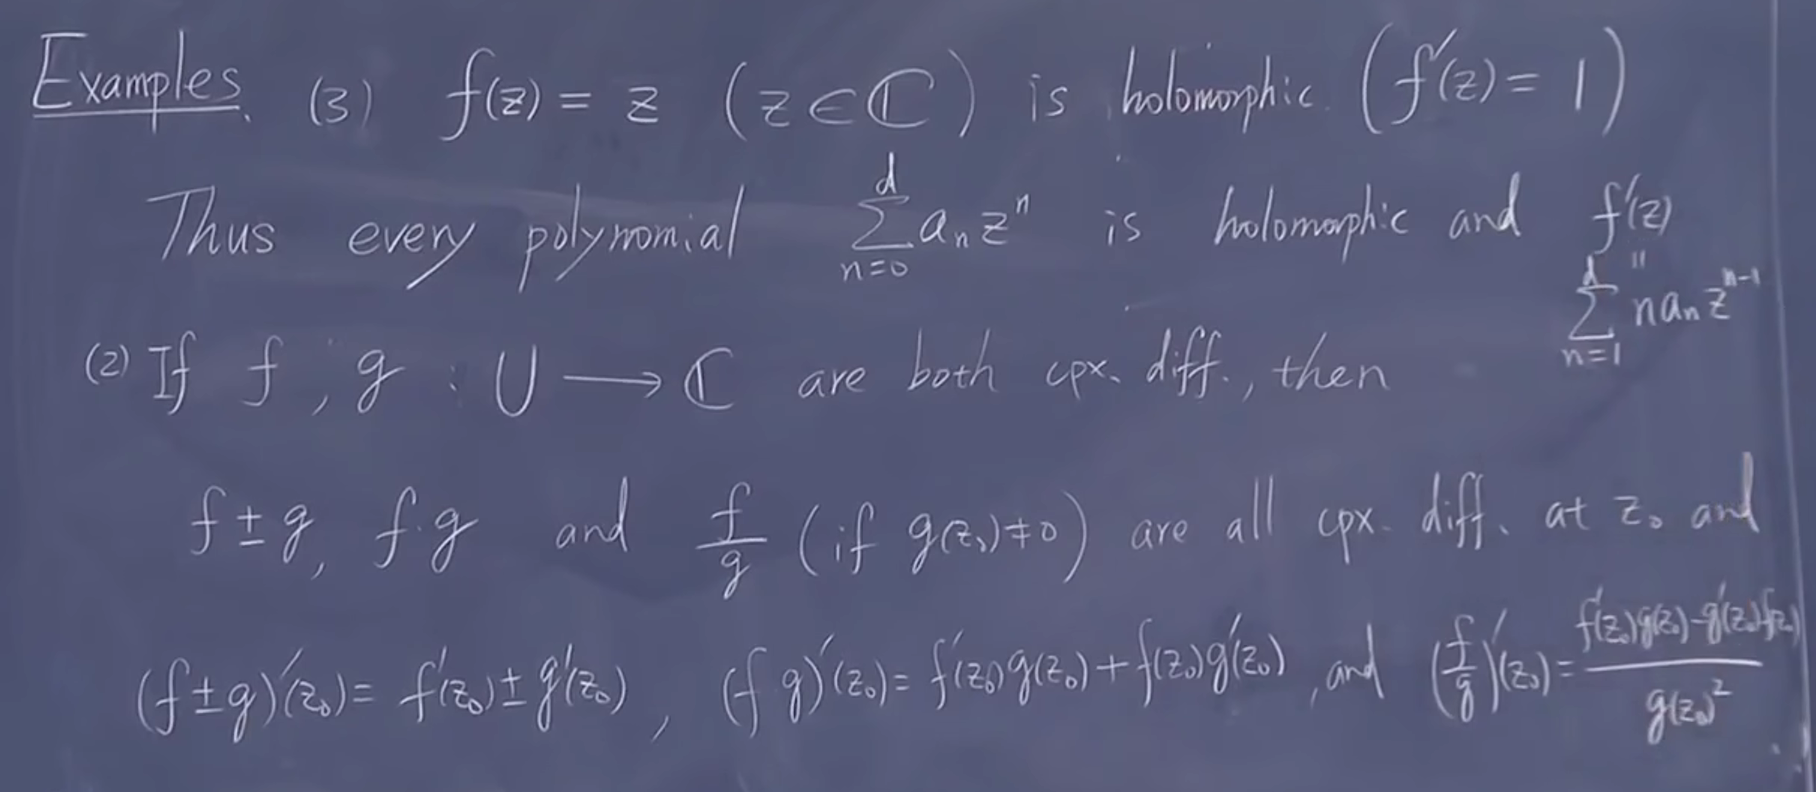 Examples. (3) f(z) = z (z ∈ ℂ) is holomorphic. (f'(z) = 1)
Thus every polynomial \sum_{n=0}^{d} a_n z^n is holomorphic and f'(z)
" \sum_{n=1}^{d} n a_n z^{n-1}
(2) If f, g : U ⟶ ℂ are both cpx. diff., then
f ± g, f·g and \frac{f}{g} (if g(z_0) ≠ 0) are all cpx. diff. at z_0 and
(f ± g)'(z_0) = f'(z_0) ± g'(z_0), (f g)'(z_0) = f'(z_0) g(z_0) + f(z_0) g'(z_0), and (\frac{f}{g})'(z_0) = \frac{f'(z_0) g(z_0) - g'(z_0) f(z_0)}{g(z_0)^2}